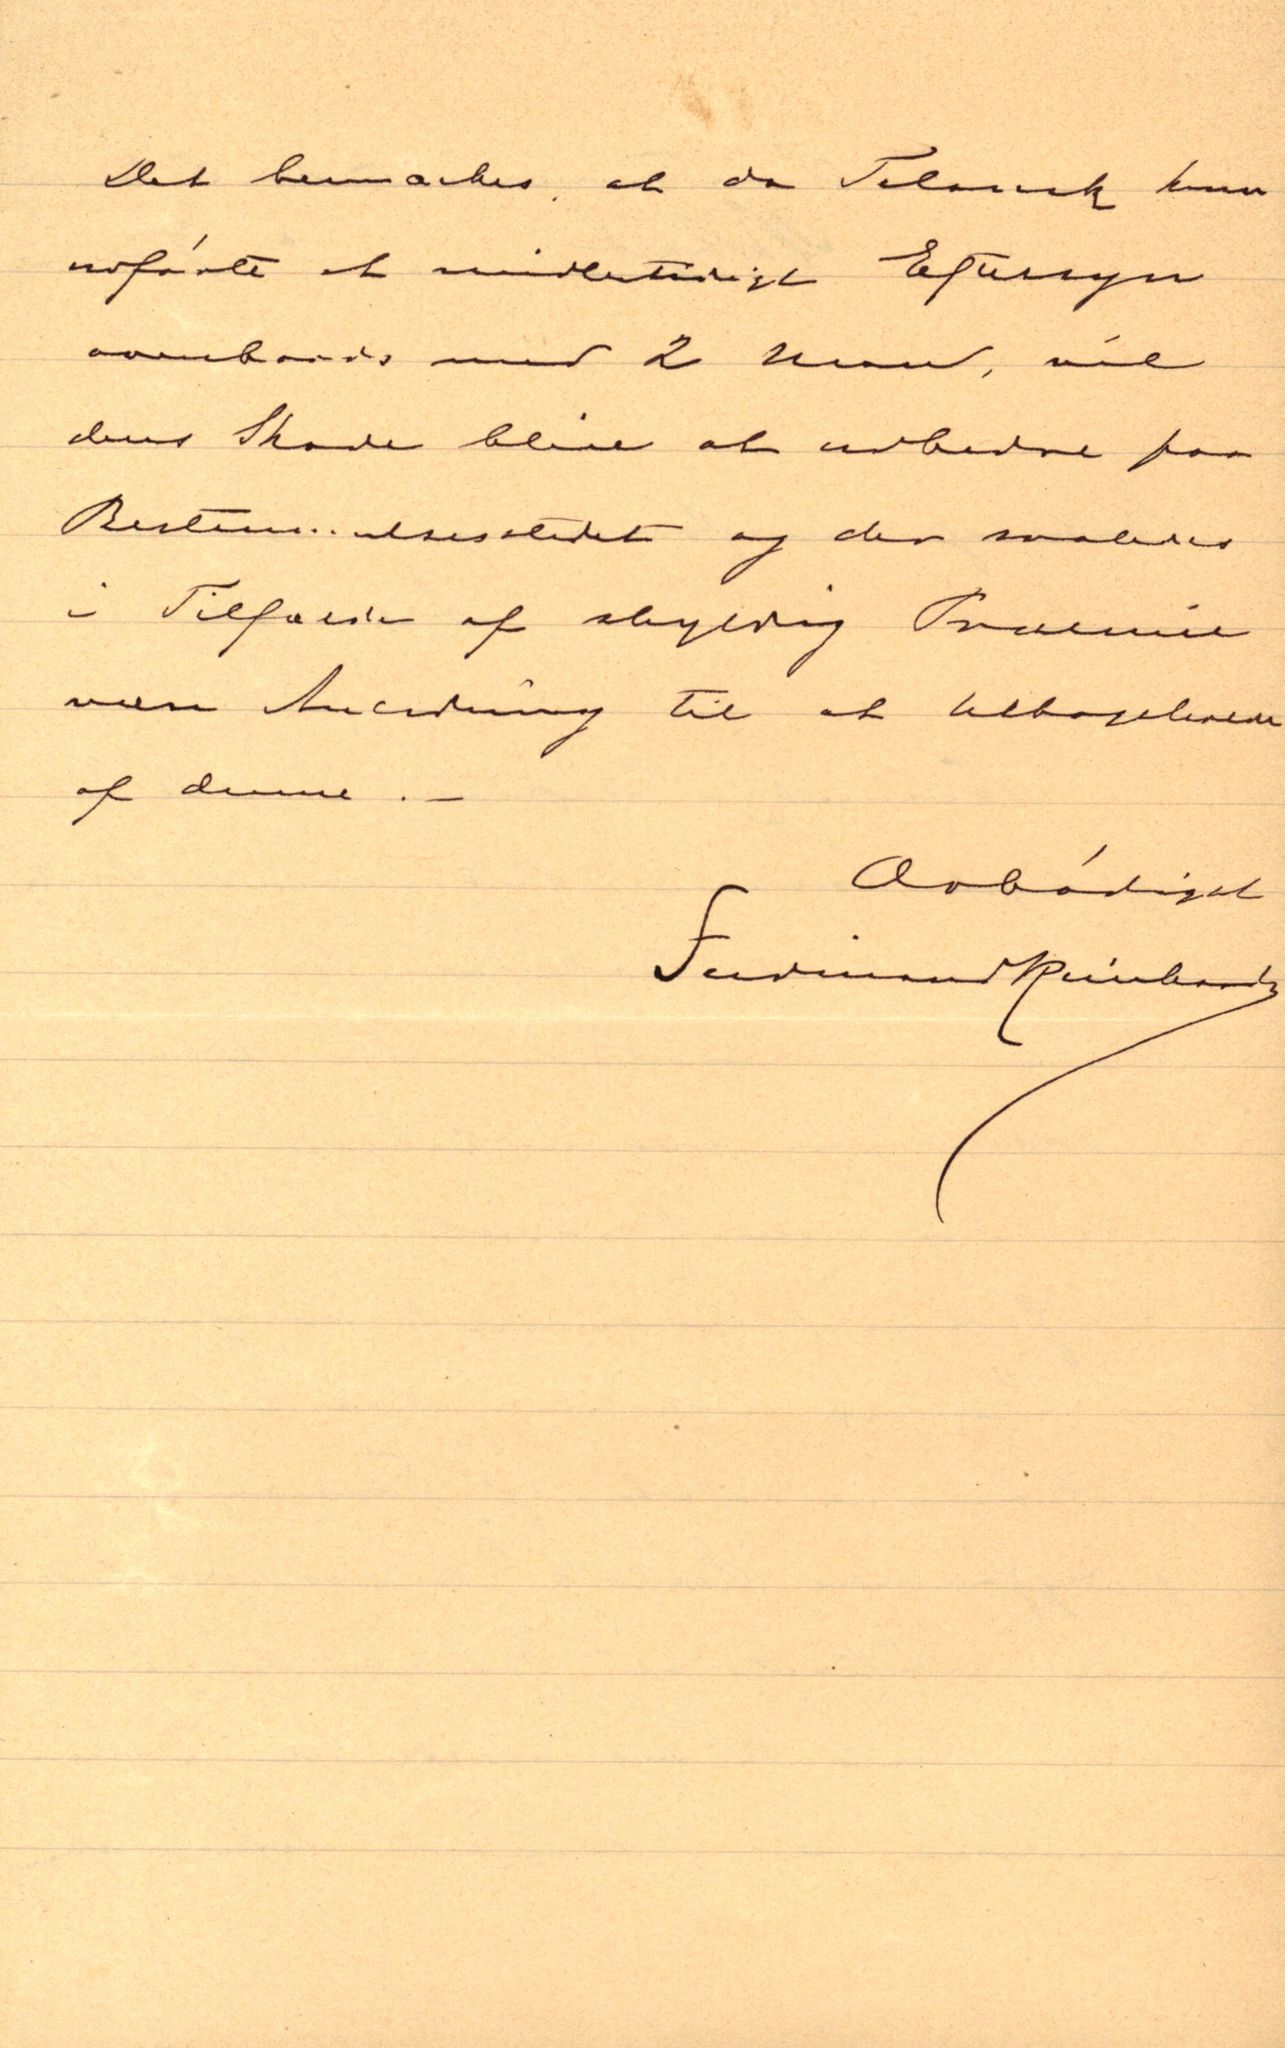 Det bemærkes, at da Telanak kun
udførte et midlertidigt Eftersyn
ovenbords med 2 Mand, vil
dens Skade blive at udbedre paa
Bestemmelsesstedet og der saaledes
i Tilfælde af skyldig Præmie
være Anledning til at tilbageholde
af denne. —
Ærbødigst
Ferdinand Reinhardt